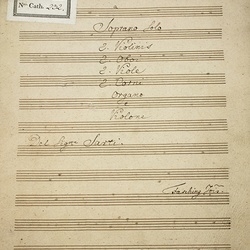 Nro Cath. 232.
Soprano Solo
2. Violinis
2. Oboi
2. Viole
2. Corni
Organo
e
Violone
Del Sigre Sarti.